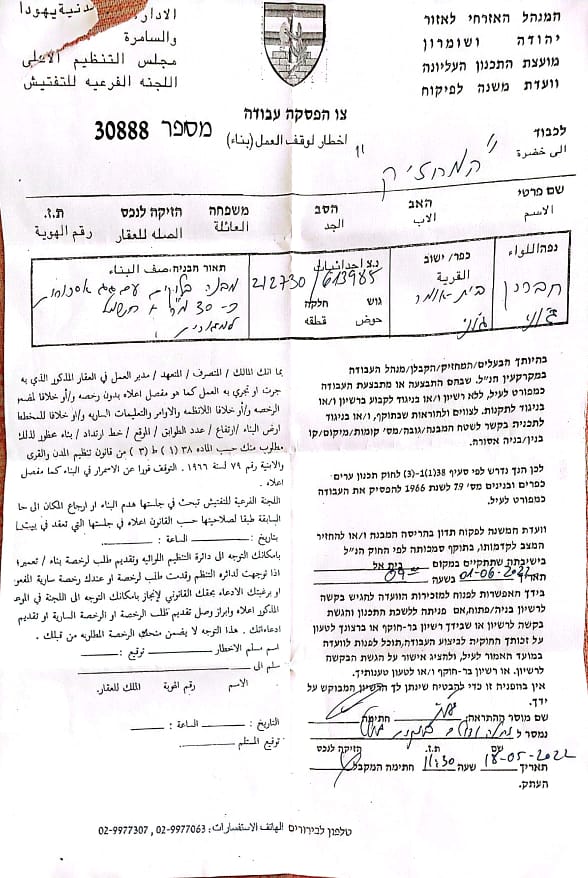 המנהל האזרחי לאזור
יהודה ושומרון
מועצת התכנון העליונה
וועדת משנה לפיקוח
الادارة
والسامرة
مجلس التنظيم الاعلى
اللجنه الفرعيه للتفتيش
צו הפסקה עבודה
اخطار لوقف العمل (بناء)
מספר 30888
לכבוד
الى حضرة
המחזיק
שם פרטי האב הסב משפחה הזיקה לנכס ת.ז.
الاسم الاب الجد العائلة الصله للعقار رقم الهوية
נפה اللواء
חברון
כפר/ ישוב
القرية
בית-אומר
נ.צ احداثيات
212730/613985
גוש חלקה
حوض قطعه
תאור הבניה, صف البناء
בהיותך הבעלים/המחזיק/הקבלן/מנהל העבודה
במקרקעין הנ"ל. שבהם התבצעה או מתבצעת העבודה
כמפורט לעיל, ללא רשיון או בניגוד לקבוע ברשיון ו/או
בניגוד לתקנות. לצווים ולהוראות שבתוקף, ו/או בניגוד
לתכניה בקשר לשטח המבנה/גובה/מס' קומות/מיקום/קו
בנין/בניה אסורה.
לכן הנך נדרש לפי סעיף 38(1)-(3) לחוק תכנון ערים
כפרים ובנינים מס' 79 לשנת 1966 להפסיק את העבודה
כמפורט לעיל.
וועדת המשנה לפקוח תדון בהריסת המבנה ו/או להחזיר
המצב לקדמותו, בתוקף סמכותה לפי החוק הנ"ל
בישיבתה שתתקיים במקום בית אל
תאריך 01-06-2022 שעה 09:00
בידך האפשרות לפנות למזכירות הוועדה להגיש בקשה
לרשיון בניה/פתוח, אם פניתה ללשכת התכנון והגשת
בקשה לרשיון או שבידך רשיון בר-חוקף או ברצונך לטעון
על זכותך החוקית לביצוע העבודה, תוכל לפנות לוועדה
במועד האמור לעיל, ולהציג אישור על הגשת הבקשה
לרשיון. או רשיון בר-חוקף ו/או לטעון טענותיך.
אין בהפניה זו כדי להבטיח שינתן לך הרשיון המבוקש על
ידך.
שם מוסר ההתראה: חתימה
נמסר ל
שם ת.ז. הזיקה לנכס
תאריך 18-05-2022 שעה 11:30 חתימה המקבל
העתק.
بما انك المالك / المتصرف / المتعهد / مدير العمل في العقار المذكور الذي به
جرت او تجري به العمل كما هو مفصل اعلاه بدون رخصه و/أو خلافا لمضم
الرخصه و/أو خلافا للانظمه والاوامر والتعليمات الساريه و/او خلافا للمخطط
ارض البناء /ارتفاع / عدد الطوابق / الموقع / خط ارتداد / بناء محظور لذلك
مطلوب منك حسب الماده ٣٨ (١) ط (٣) من قانون تنظيم المدن والقرى
والابنية رقم ٧٩ لسنة ١٩٦٦. التوقف فورا عن الاسمرار في البناء كما مفصل
اعلاه.
اللجنه الفرعيه للتفتيش تبحث في جلستها هدم البناء او ارجاع المكان الى حا
السابقة طبقا لصلاحيتها حسب القانون اعلاه في جلستها التي تعقد في بيت
بتاريخ: الساعة:
بامكانك التوجه الى دائرة التنظيم اللوائيه وتقديم طلب لرخصة بناء / تعمير؛
اذا توجهت لدائره التنظم وقدمت طلب لرخصة او عندك رخصة سارية المفعو
او برغبتك الادعاء بحقك القانوني لإنجاز بامكانك التوجه الى اللجنة في الموعد
المذكور اعلاه وابراز وصل تقديم طلب الرخصة او الرخصة السارية او تقديم
ادعاءاتك. هذا التوجه لا يضمن منحك الرخصة المطلوبه من قبلك.
اسم مسلم الاخطار توقيع:
سلم الى
الاسم رقم الهوية الملك للعقار.
التاريخ: الساعة:
توقيع المستلم
טלפון לבירורים الهاتف الاستفسارات: 02-9977063, 02-9977307